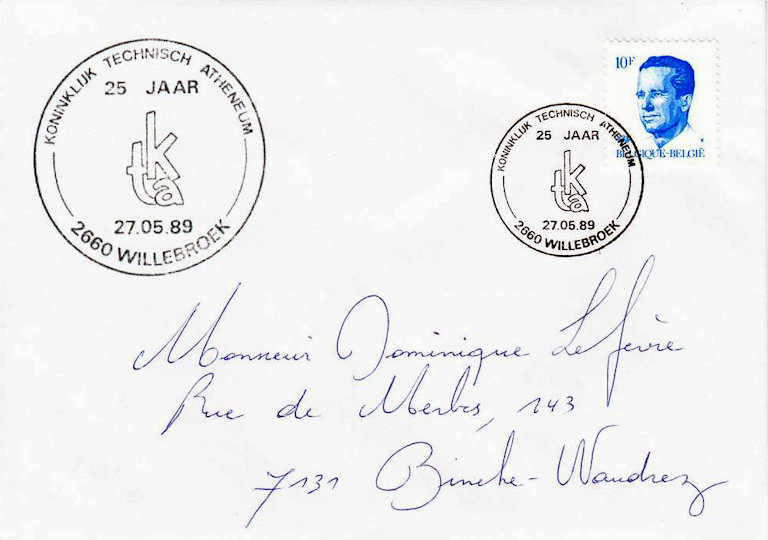 KONINKLIJK TECHNISCH ATHENEUM
25 JAAR
kta
27.05.89
2660 WILLEBROEK
10F
BELGIQUE-BELGIË
KONINKLIJK TECHNISCH ATHENEUM
25 JAAR
kta
27.05.89
2660 WILLEBROEK
Monsieur Dominique Lefèvre
Rue de Merbes, 143
7131 Binche-Waudrez